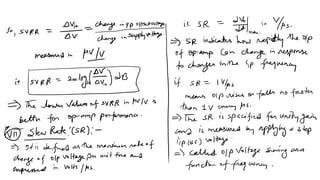 So, SVRR = ΔVio / ΔV = change in i/p offset voltage / change in supply voltage
measured in μV/V
is SVRR = 20 log (ΔV / ΔVio) dB
⇒ The lower values of SVRR in μV/V is
better for op-amp performance.
VII) Slew Rate (SR):-
⇒ It is defined as the maximum rate of
change of o/p voltage per unit time and
expressed in volts/μs.
is SR = dVo/dt |max in V/μs.
⇒ SR indicates how rapidly the o/p
of op-amp can change in response
to changes in the i/p frequency
if SR = 1V/μs
means o/p rises or falls no faster
than 1V every μs.
⇒ The SR is specified for unity gain
and is measured by applying a step
i/p (DC) voltage.
⇒ Called o/p voltage swing as a
function of frequency.